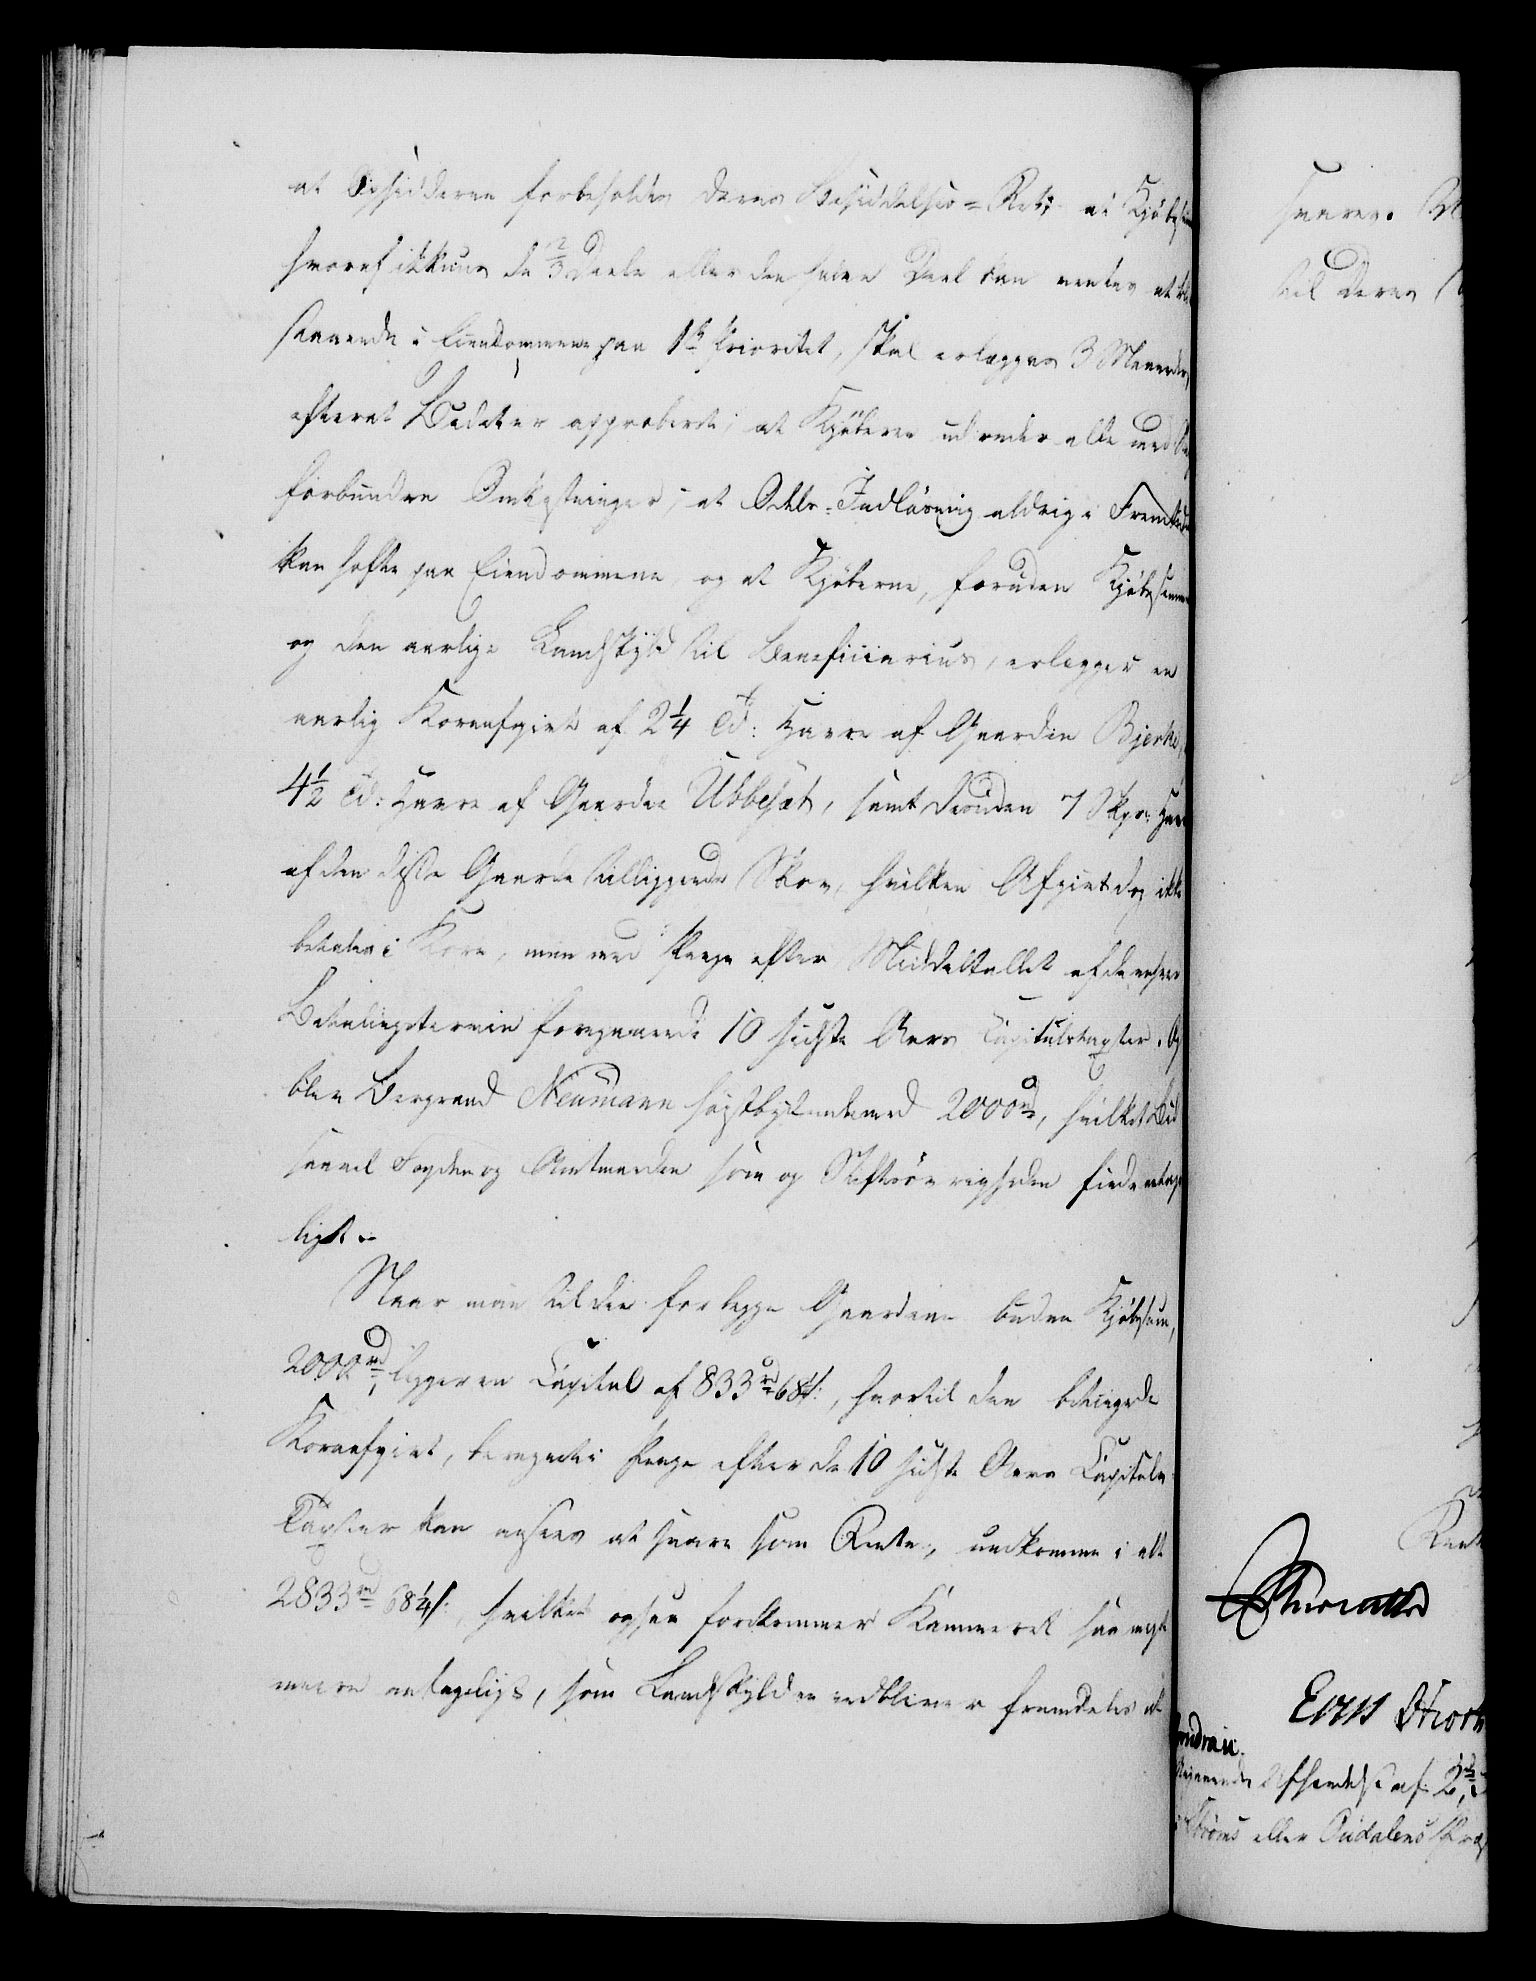 at Opsidderen forbeholdes deres Besiddelses-Ret, at Kjøbesum
hvoraf ikkuns de 2/3 Deele eller den halve Deel kan ventes at blive
staaende i Eiendommene paa 1ste Prioritet, skal erlægges 3 Maaneder
efterat Budet er approberet; at Kjøberne udreder alle med
forbundne Omkostninger, at Odels-Indløsning aldrig i Fremtiden
kan hæfte paa Eiendommene, og at Kjøberne, foruden Kjøbesummen
og den aarlige Landskyld til Beneficiarius, erlægger en
aarlig Kornafgivt af 2 1/4 Td: Havre af Gaarden Bjerke,
4 1/2 Td: Havre af Gaarden Ubbesæt, samt desuden 7 Skpr: Havre
af den disse Gaarde tilliggende Skov, hvilken Afgivt dog ikke
betales i Korn, men med Penge efter Middeltallet af de enhver
Betalingstermin foregaaende 10 sidste Aars Capitulstaxter. Og
blev Bergraad Neumann høistbydende med 2000 rd, hvilket Bud
saavel Fogden og Amtmanden som og Stiftsøvrigheden finde antage-
ligt.
Naar man til den for begge Gaardene budne Kjøbesum,
2000 rd, lægger en Capital af 833 rd 68 1/4 s:, hvortil den betingede
Kornafgivt, beregnet i Penge efter de 10 sidste Aars Capituls-
Taxter kan ansees at svare som Rente, udkommer i alt
2833 rd 68 1/4 s:, hvilket ogsaa forekommer Kammeret saa meget
meere antageligt, som Landskylden vedbliver fremdeles at
svares.
til deres
Eeg Hiort
Afhændelse af 2de
eller Oudalens